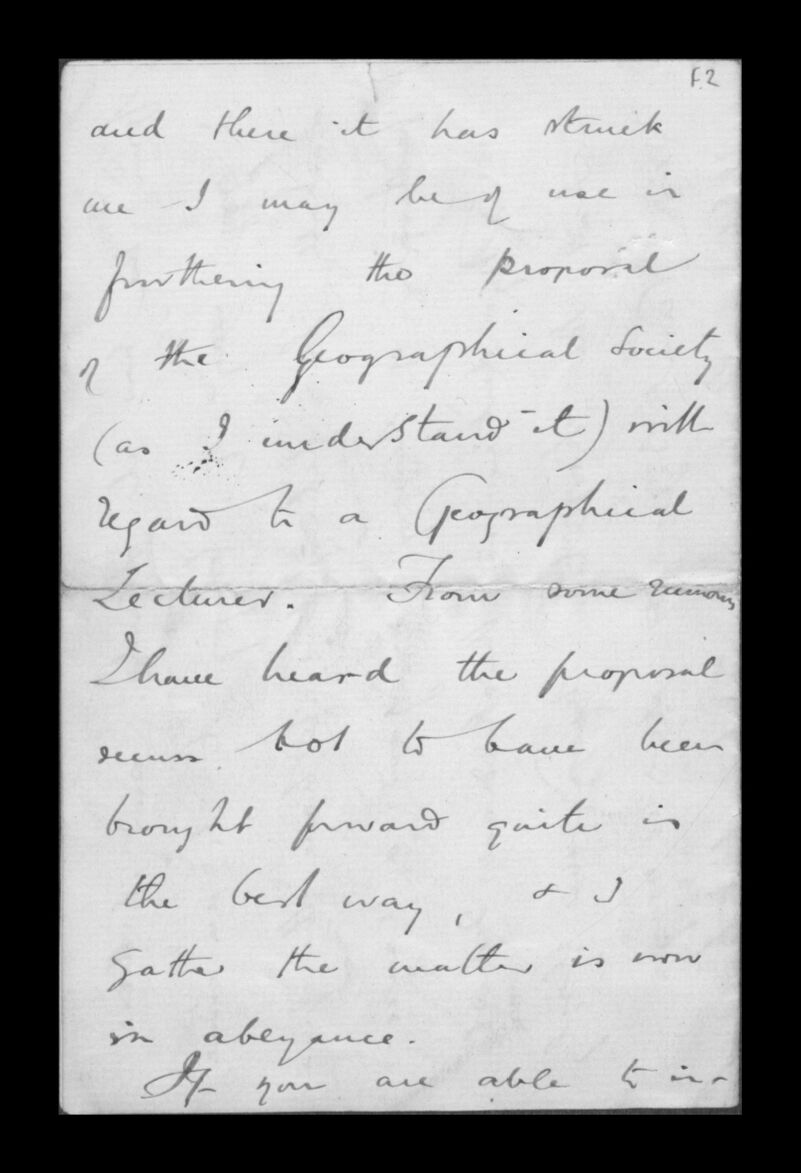 F.2
and there it has struck
me I may be of use in
furthering the proposal
of the Geographical Society
(as I understand it) with
regard to a Geographical
Lecturer. From some rumours
I have heard the proposal
seems not to have been
brought forward quite in
the best way, & I
gather the matter is now
in abeyance.
If you are able to in-